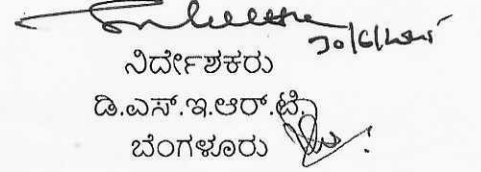 ನಿರ್ದೇಶಕರು
ಡಿ.ಎಸ್.ಇ.ಆರ್.ಟಿ,
ಬೆಂಗಳೂರು